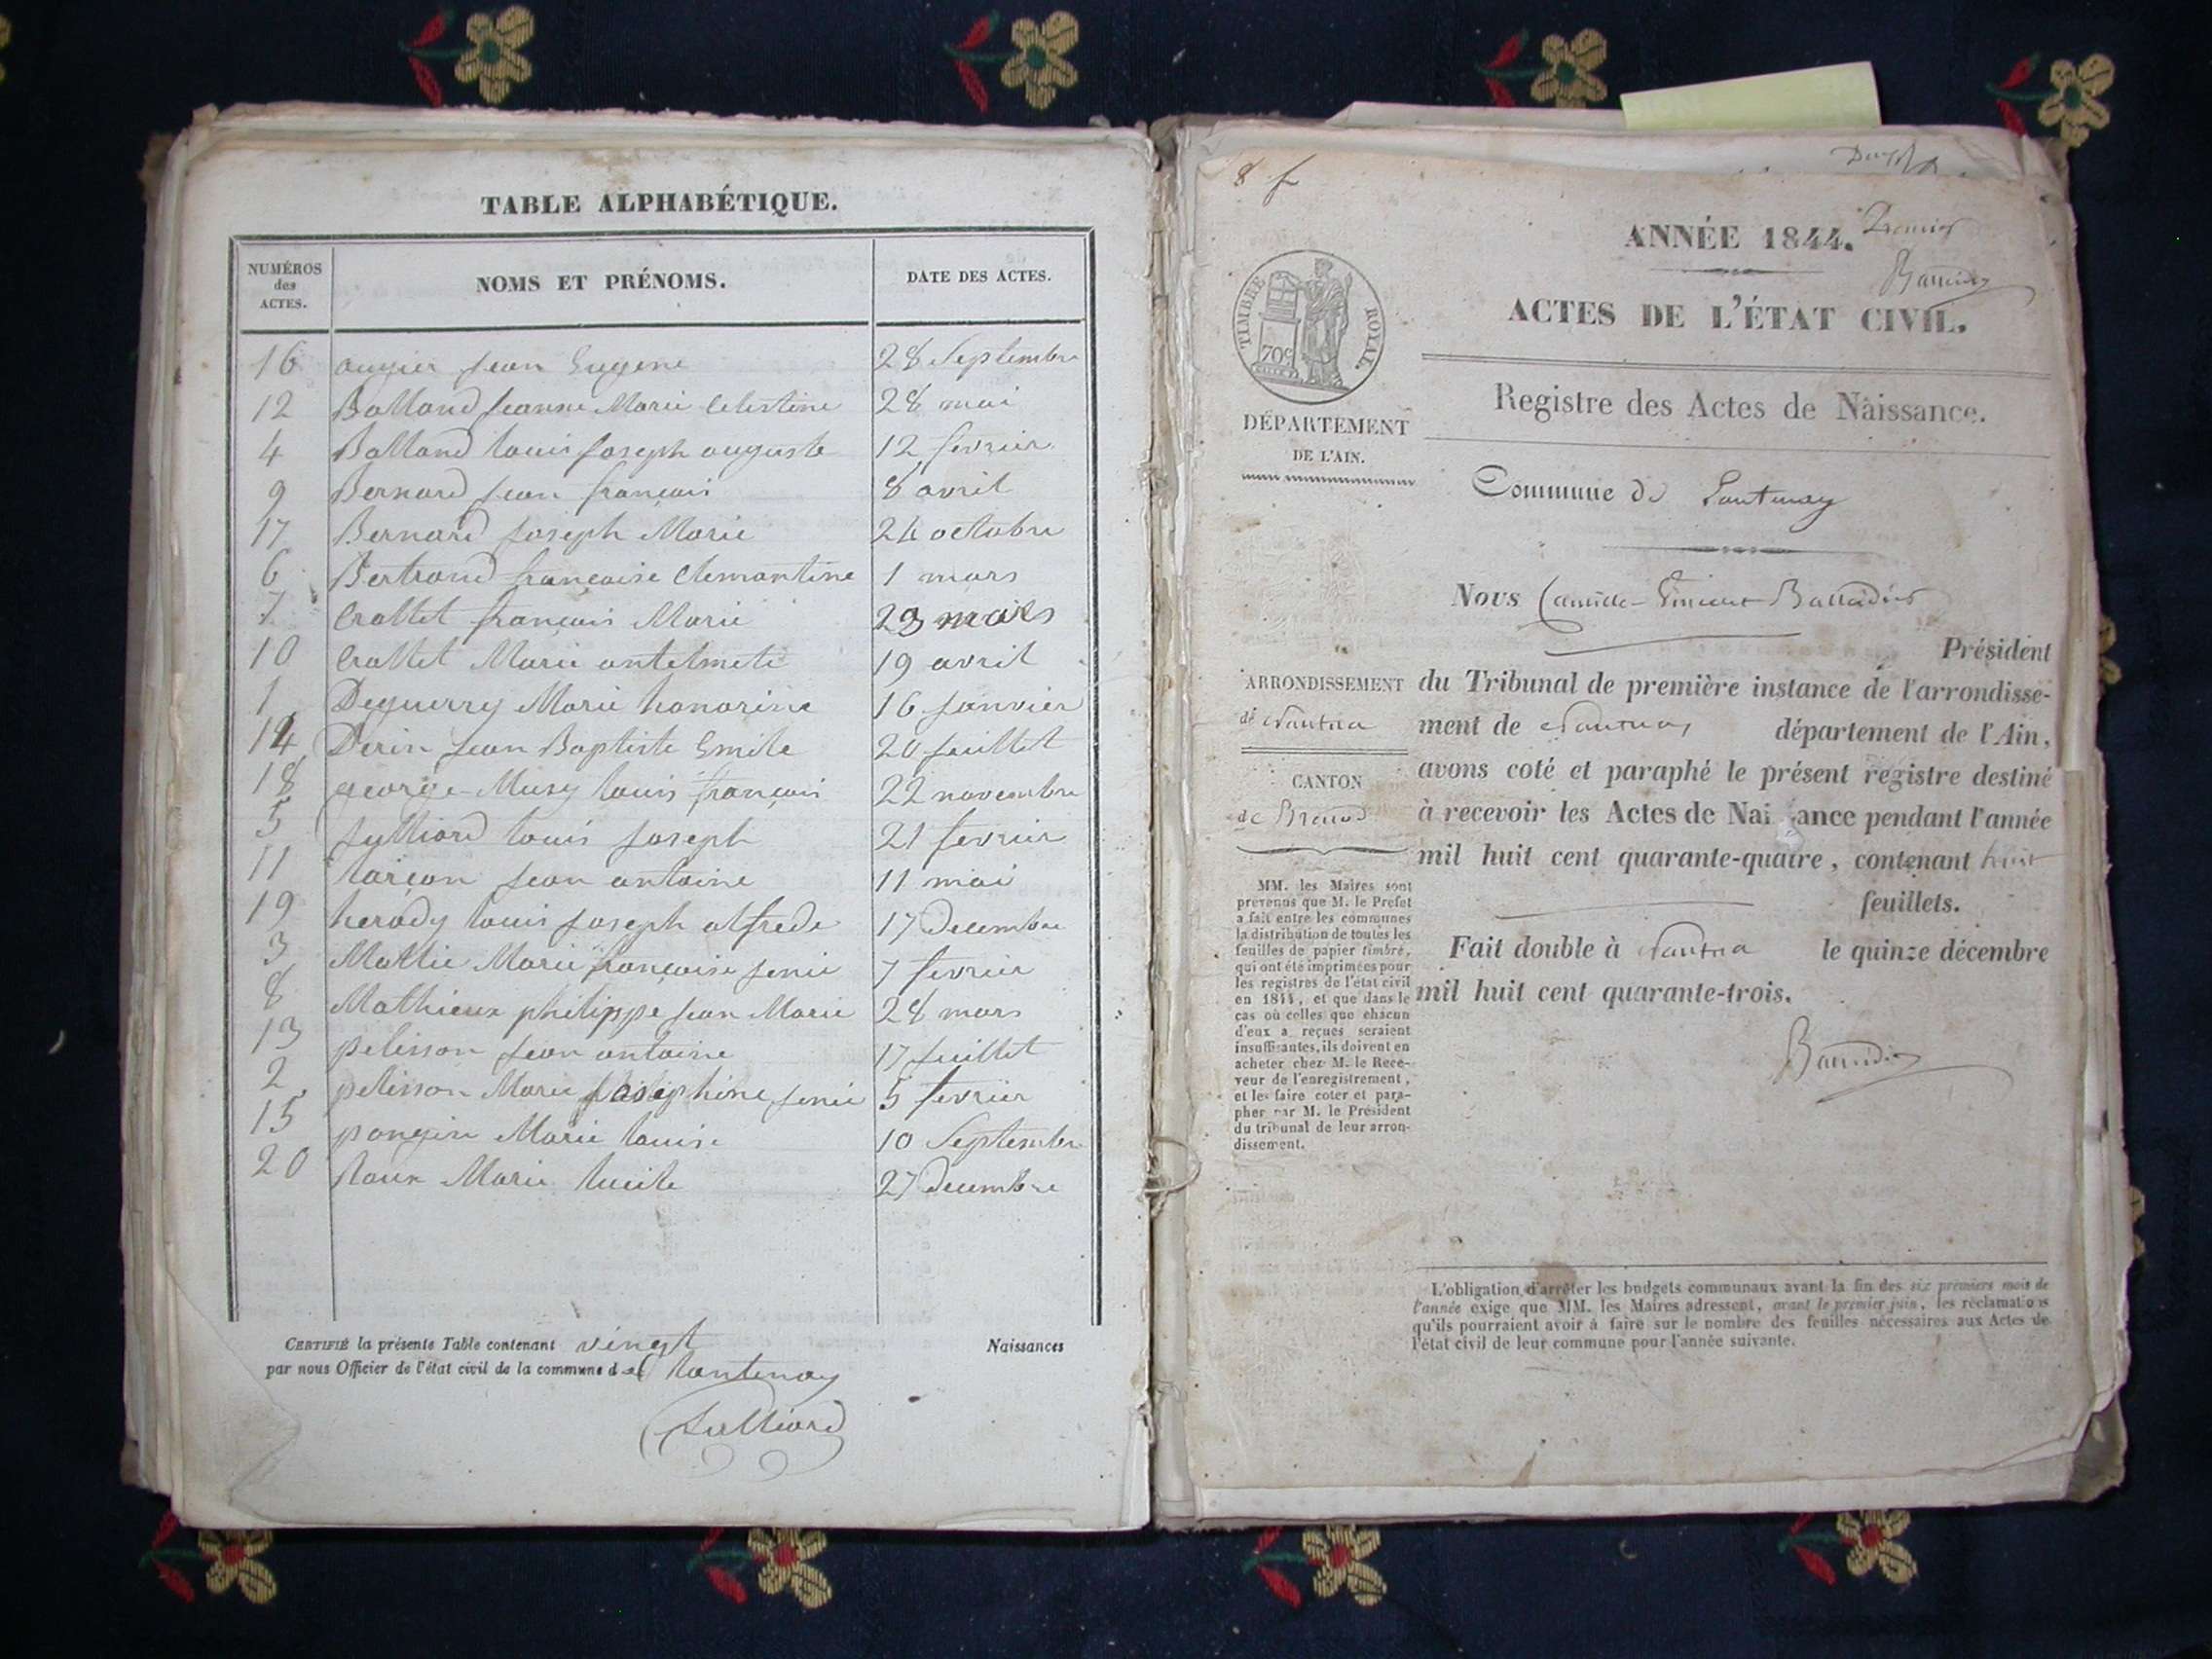 TABLE ALPHABÉTIQUE.
NUMÉROS des ACTES. NOMS ET PRÉNOMS. DATE DES ACTES.
16 augier jean Eugene 28 Septembre
12 Balland jeanne Marie Celestine 28 mai
4 Balland louis joseph auguste 12 fevrier
9 Bernard jean françois 8 avril
17 Bernard joseph Marie 24 octobre
6 Bertrand françoise Clemantine 1 mars
7 Crollet françois Marie 23 mars
10 Crollet Marie antelmete 19 avril
1 Deguerry Marie honorine 16 janvier
14 Derin jean Baptiste Emile 20 juillet
18 george-Musy louis françois 22 novembre
5 julliard louis joseph 21 fevrier
11 larçon jean antoine 11 mai
19 lerody louis joseph alfrede 17 Decembre
3 Mallie Marie françoise jenie 7 fevrier
8 Mathieux philippe jean Marie 28 mars
13 pelisson jean antoine 17 juillet
2 pelisson Marie josephine jenie 5 fevrier
15 pongin Marie louise 10 Septembre
20 Roux Marie lucile 27 Decembre
CERTIFIÉ la présente Table contenant vingt Naissances
par nous Officier de l'état civil de la commune de lantenay
Julliard
8 f
ANNÉE 1844. Premier
TIMBRE ROYAL.
70c
ACTES DE L'ÉTAT CIVIL.
Registre des Actes de Naissance.
DÉPARTEMENT
DE L'AIN.
Commune de Lantenay
Nous Camille-Vincent
Président
ARRONDISSEMENT
de Nantua
CANTON
de Brenod
du Tribunal de première instance de l'arrondisse-
ment de Nantua, département de l'Ain,
avons coté et paraphé le présent registre destiné
à recevoir les Actes de Nai ance pendant l'année
mil huit cent quarante-quatre, contenant huit
feuillets.
Fait double à Nantua le quinze décembre
mil huit cent quarante-trois.
MM. les Maires sont
prévenus que M. le Préfet
a fait entre les communes
la distribution de toutes les
feuilles de papier timbré,
qui ont été imprimées pour
les registres de l'état civil
en 1844, et que dans le
cas où celles que chacun
d'eux a reçues seraient
insuffisantes, ils doivent en
acheter chez M. le Rece-
veur de l'enregistrement,
et les faire coter et para-
pher par M. le Président
du tribunal de leur arron-
dissement.
L'obligation d'arrêter les budgets communaux avant la fin des six premiers mois de
l'année exige que MM. les Maires adressent, avant le premier juin, les réclamations
qu'ils pourraient avoir à faire sur le nombre des feuilles nécessaires aux Actes de
l'état civil de leur commune pour l'année suivante.